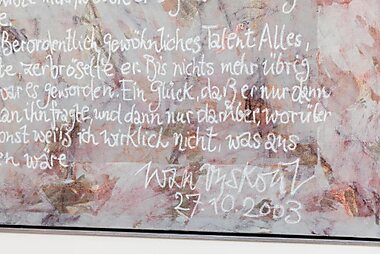 Berordentlich gewöhnliches Talent Alles,
te, zerbröselte er. Bis nichts mehr übrig
war es geworden. Ein Glück, daß er nur dann
an ihn fragte, und dann nur darüber, worüber
onst weiß ich wirklich nicht, was aus
en wäre
27.10.2003